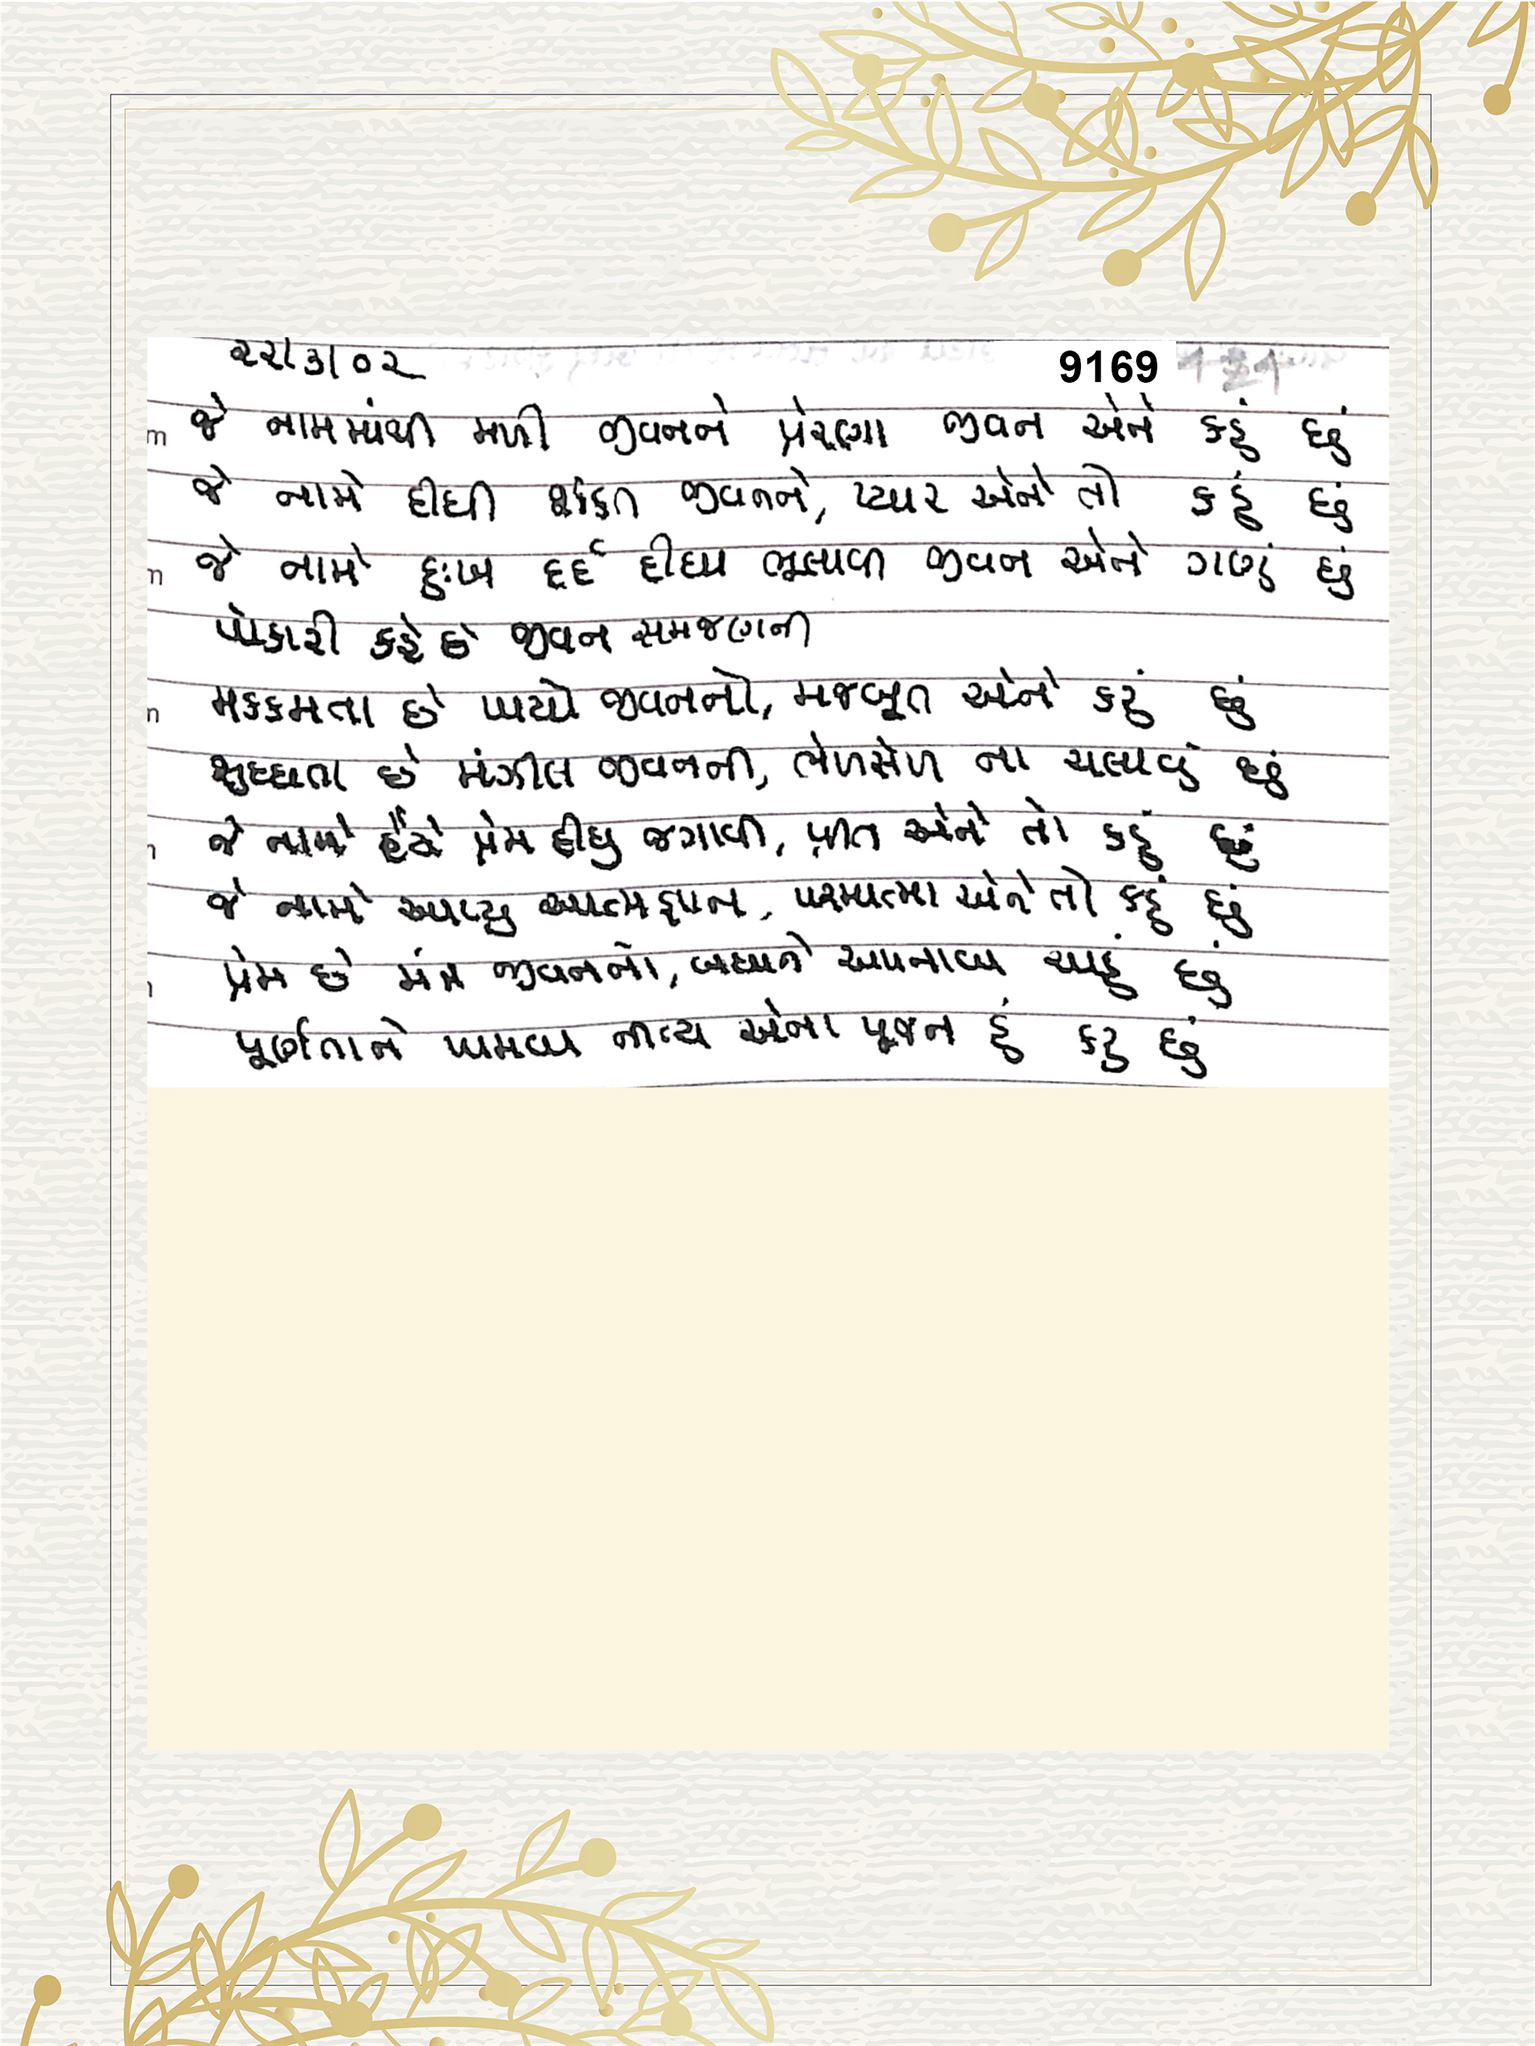 ૨૨/૩/૦૨
9169
જે નામમાંથી મળી જીવનને પ્રેરણા જીવન એને કહું છું
જે નામે દીધી શક્તિ જીવનને, પ્યાર એને તો કહું છું
જે નામે દુઃખ દર્દ દીધા ભૂલાવી જીવન એને ગણું છું
પોકારી કહે છે જીવન સમજણની
મક્કમતા છે પાયો જીવનનો, મજબૂત એને કરું છું
શુધ્ધતા છે મંઝીલ જીવનની, ભેળસેળ ના ચલાવું છું
જે નામે હૈંયે પ્રેમ દીધુ જગાવી, પ્રીત એને તો કહું છું
જે નામે આપ્યુ આત્મજ્ઞાન, પરમાત્મા એને તો કહું છું
પ્રેમ છે મંત્ર જીવનનો, બધાને અપનાવા ચાહું છું
પૂર્ણતાને પામવા નીત્ય એના પૂજન હું કરુ છું